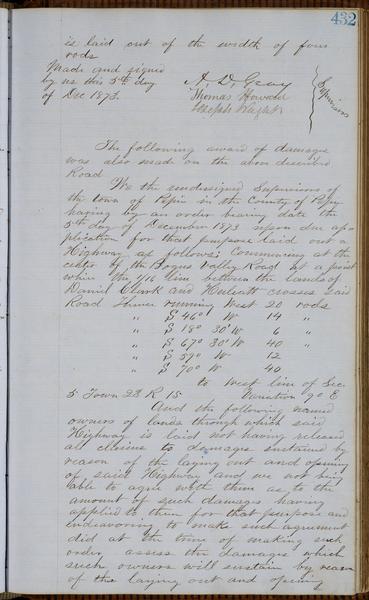 432
is laid out of the width of four
rods
Made and signed
by us this 5th day
of Dec 1873.
A. D. Gray
Thomas Howard
Joseph
Supervisors
The following award of damages
was also made on the above described
Road
We the undersigned Supervisors of
the town of Pepin in the County of Pepin
having by an order bearing date the
5th day of December 1873 upon due ap=
plication for that purpose laid out a
Highway as follows: Commencing at the
center of the Valley Road at a point
where the 1/16 line between the lands of
Daniel Clark and crosses said
Road thence running West 20 rods
" S 46° W 14 "
" S 18° 30' W 6 "
" S 67° 30' W 40 "
" S 59° W 12
" S 70° W 40
to West line of Sec.
5 Town 23 R 15 Variation 9° E
And the following named
owners of lands through which said
Highway is laid not having released
all claims to damages sustained by
reason of the laying out and opening
of said Highway and we not being
able to agree with them as to the
amount of such damages having
applied to them for that purpose and
endeavoring to make such agreement
did at the time of making such
order assess the damages which
such owners will sustain by reason
of the laying out and opening